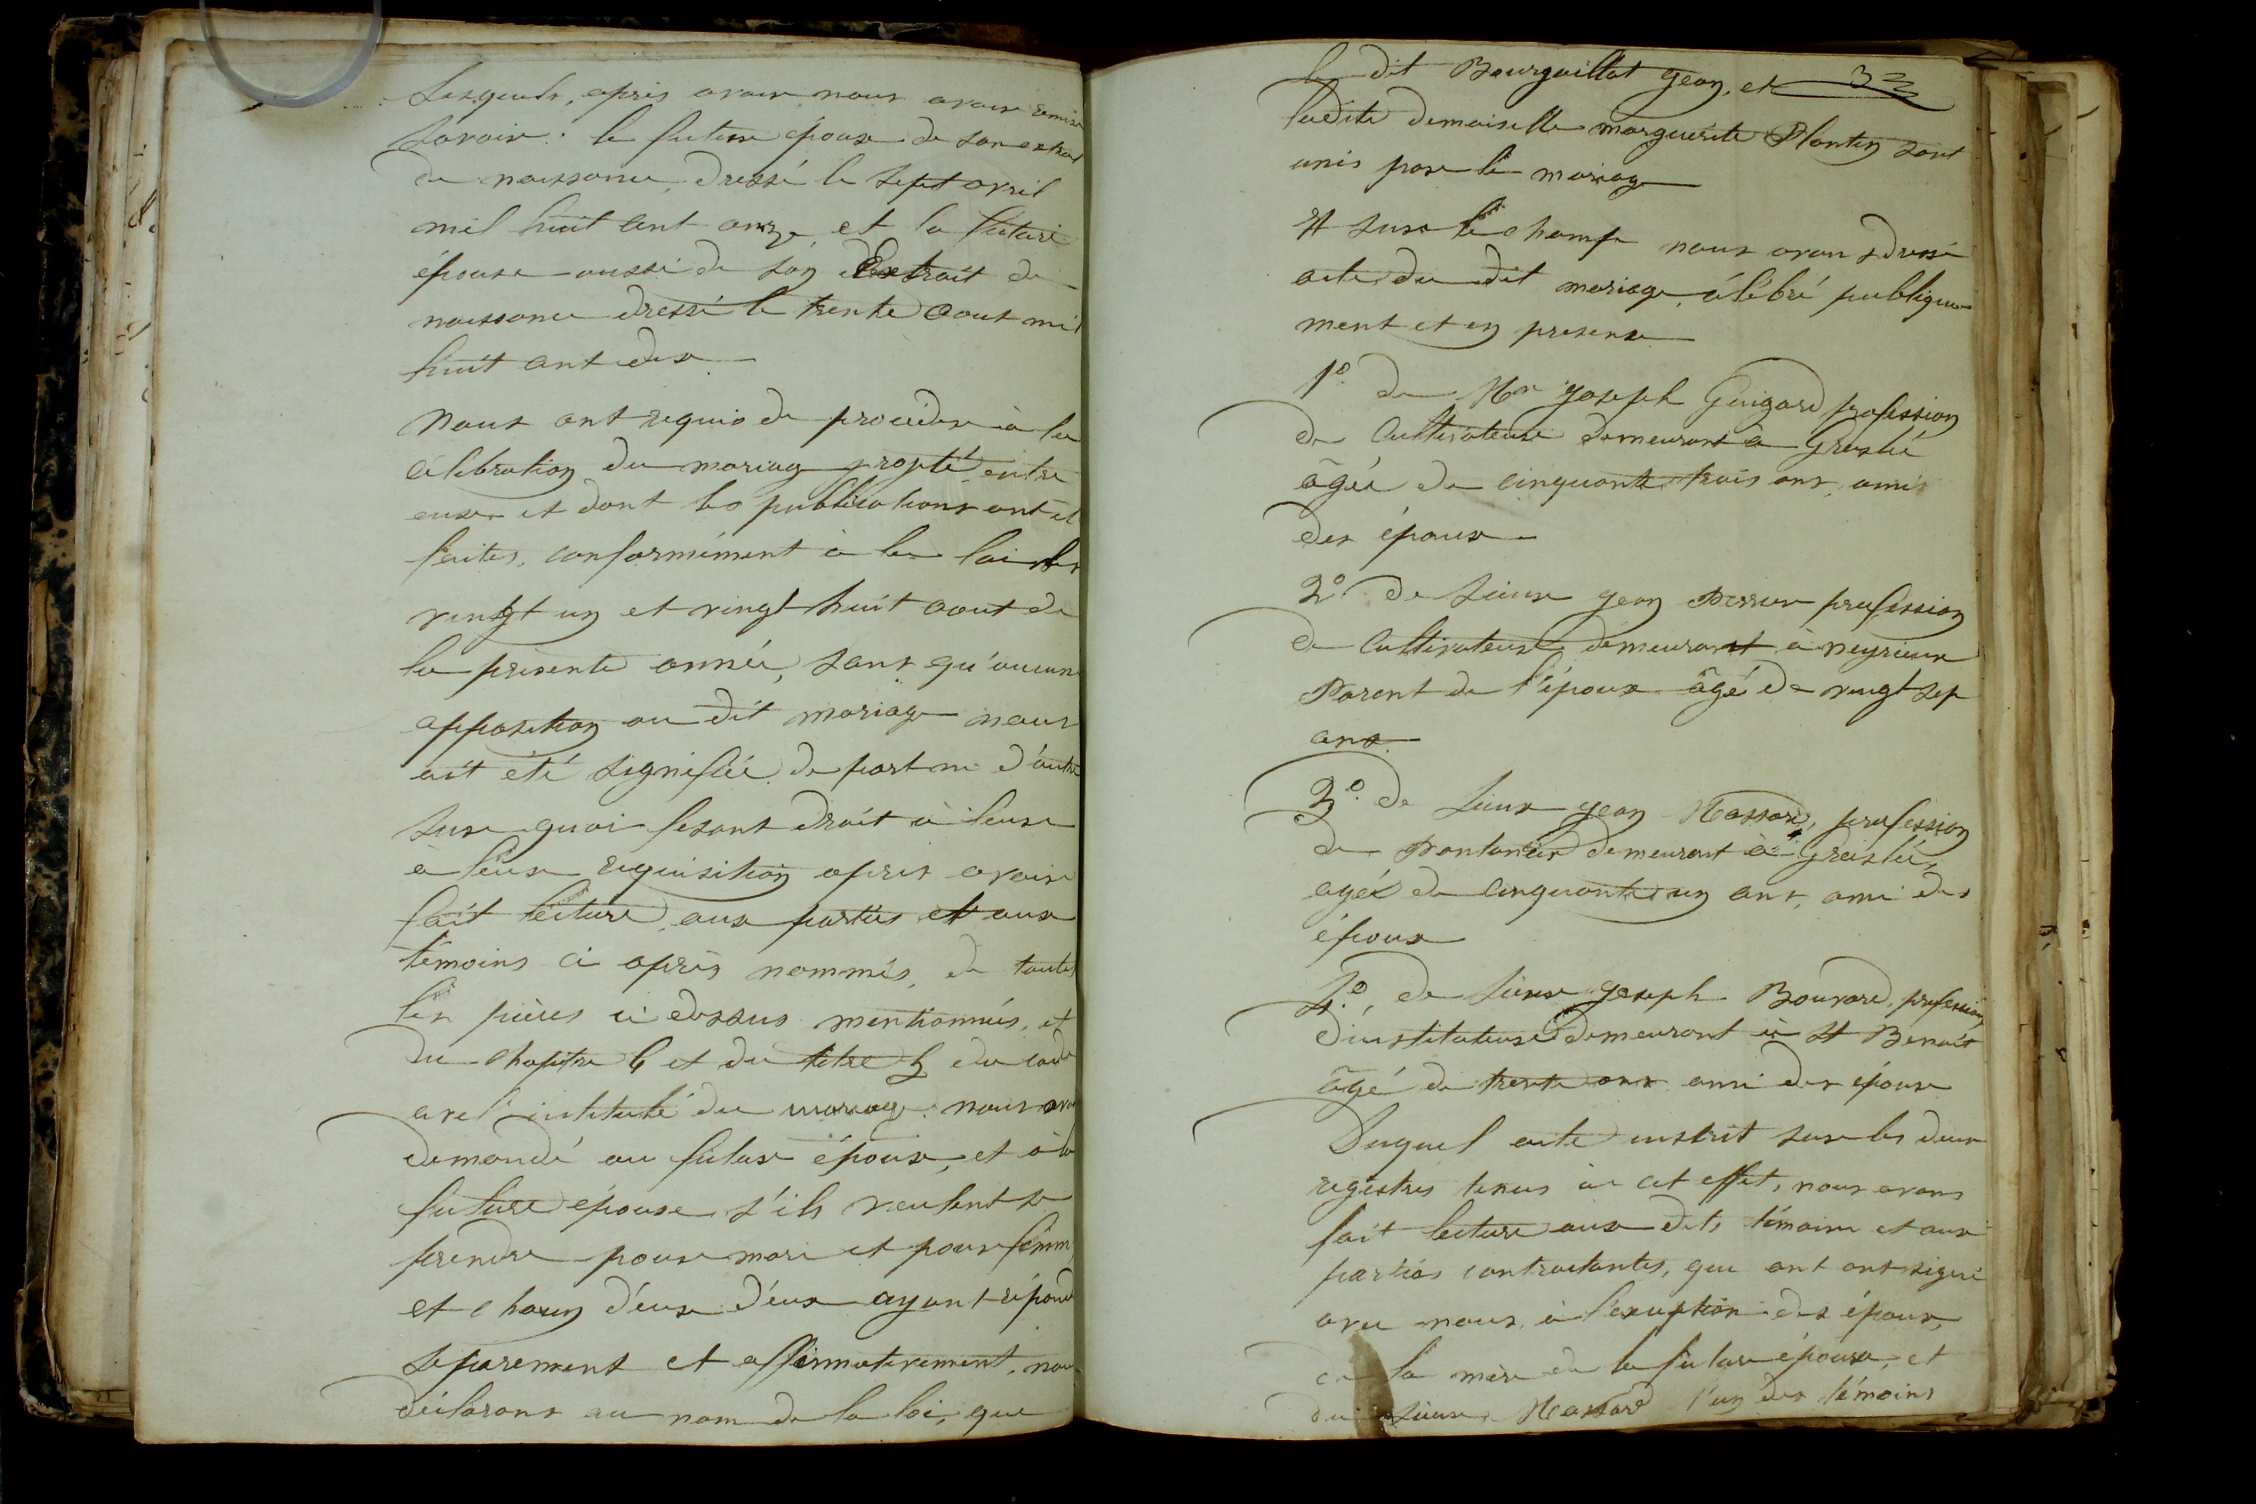 Lesquels, après avoir nous avoir remis
savoir : le future époux de son extrait
de naissance, dressé le sept avril
mil huit cent onze, et la future
épouse aussi de son Extrait de
naissance dressé le trente aout mil
huit cent dix
Nous ont requis de proceder à la
célébration du mariag projeté entre
eux et dont les publications ont été
faites, conformément à la loi les
vingt un et vingt huit aout de
la présente année, sans qu'aucune
opposition au dit mariage nous
ait été signifiée de part ni d'autre
sur quoi fesant droit à leur
à leur requisition après avoir
fait lecture aux parties et aux
témoins ci après nommés, de toutes
les pièces ci dessus mentionnées, et
du chapitre 6 et du titre 5 du code
civil intitulé du mariage nous avons
demandé au futur époux, et à la
future épouse s'ils veulent se
prendre pour mari et pour femme
et chacun d'eux d'eux ayant répondu
séparement et affirmativement, nous
déclarons au nom de la loi, que
le dit Bourgaillat Jean, et 32
ladite demoiselle marguerite Plantin sont
unis par le mariage
Et sur le champ nous avons dressé
acte du dit mariage, célébré publique
ment et en presence
1º. de Mr Joseph Guigard profession
de Cultivateur demeurant à Groslée
âgée de cinquante trois ans, amis
des époux
2º de Sieur Jean Perrier profession
de Cultivateur demeurant à neyrieux
Parent de l'époux âgé de vingt sep
ans
3º. de Sieur Jean Massard, profession
de Pontonier demeurant à Groslée,
agée de cinquante un ans, ami des
époux
4º. de Sieur Joseph Bouvard, profession
d'instituteur demeurant à St Benoit
âgé de trente ans ami des époux
Duquel acte inscrit sur les deux
registres tenus à cet effet, nous avons
fait lecture aux dits témoins et aux
parties contractantes, que ont ont signé
avec nous, à l'exception des époux,
de la mère de la future épouse, et
du sieur Massard l'un des témoins